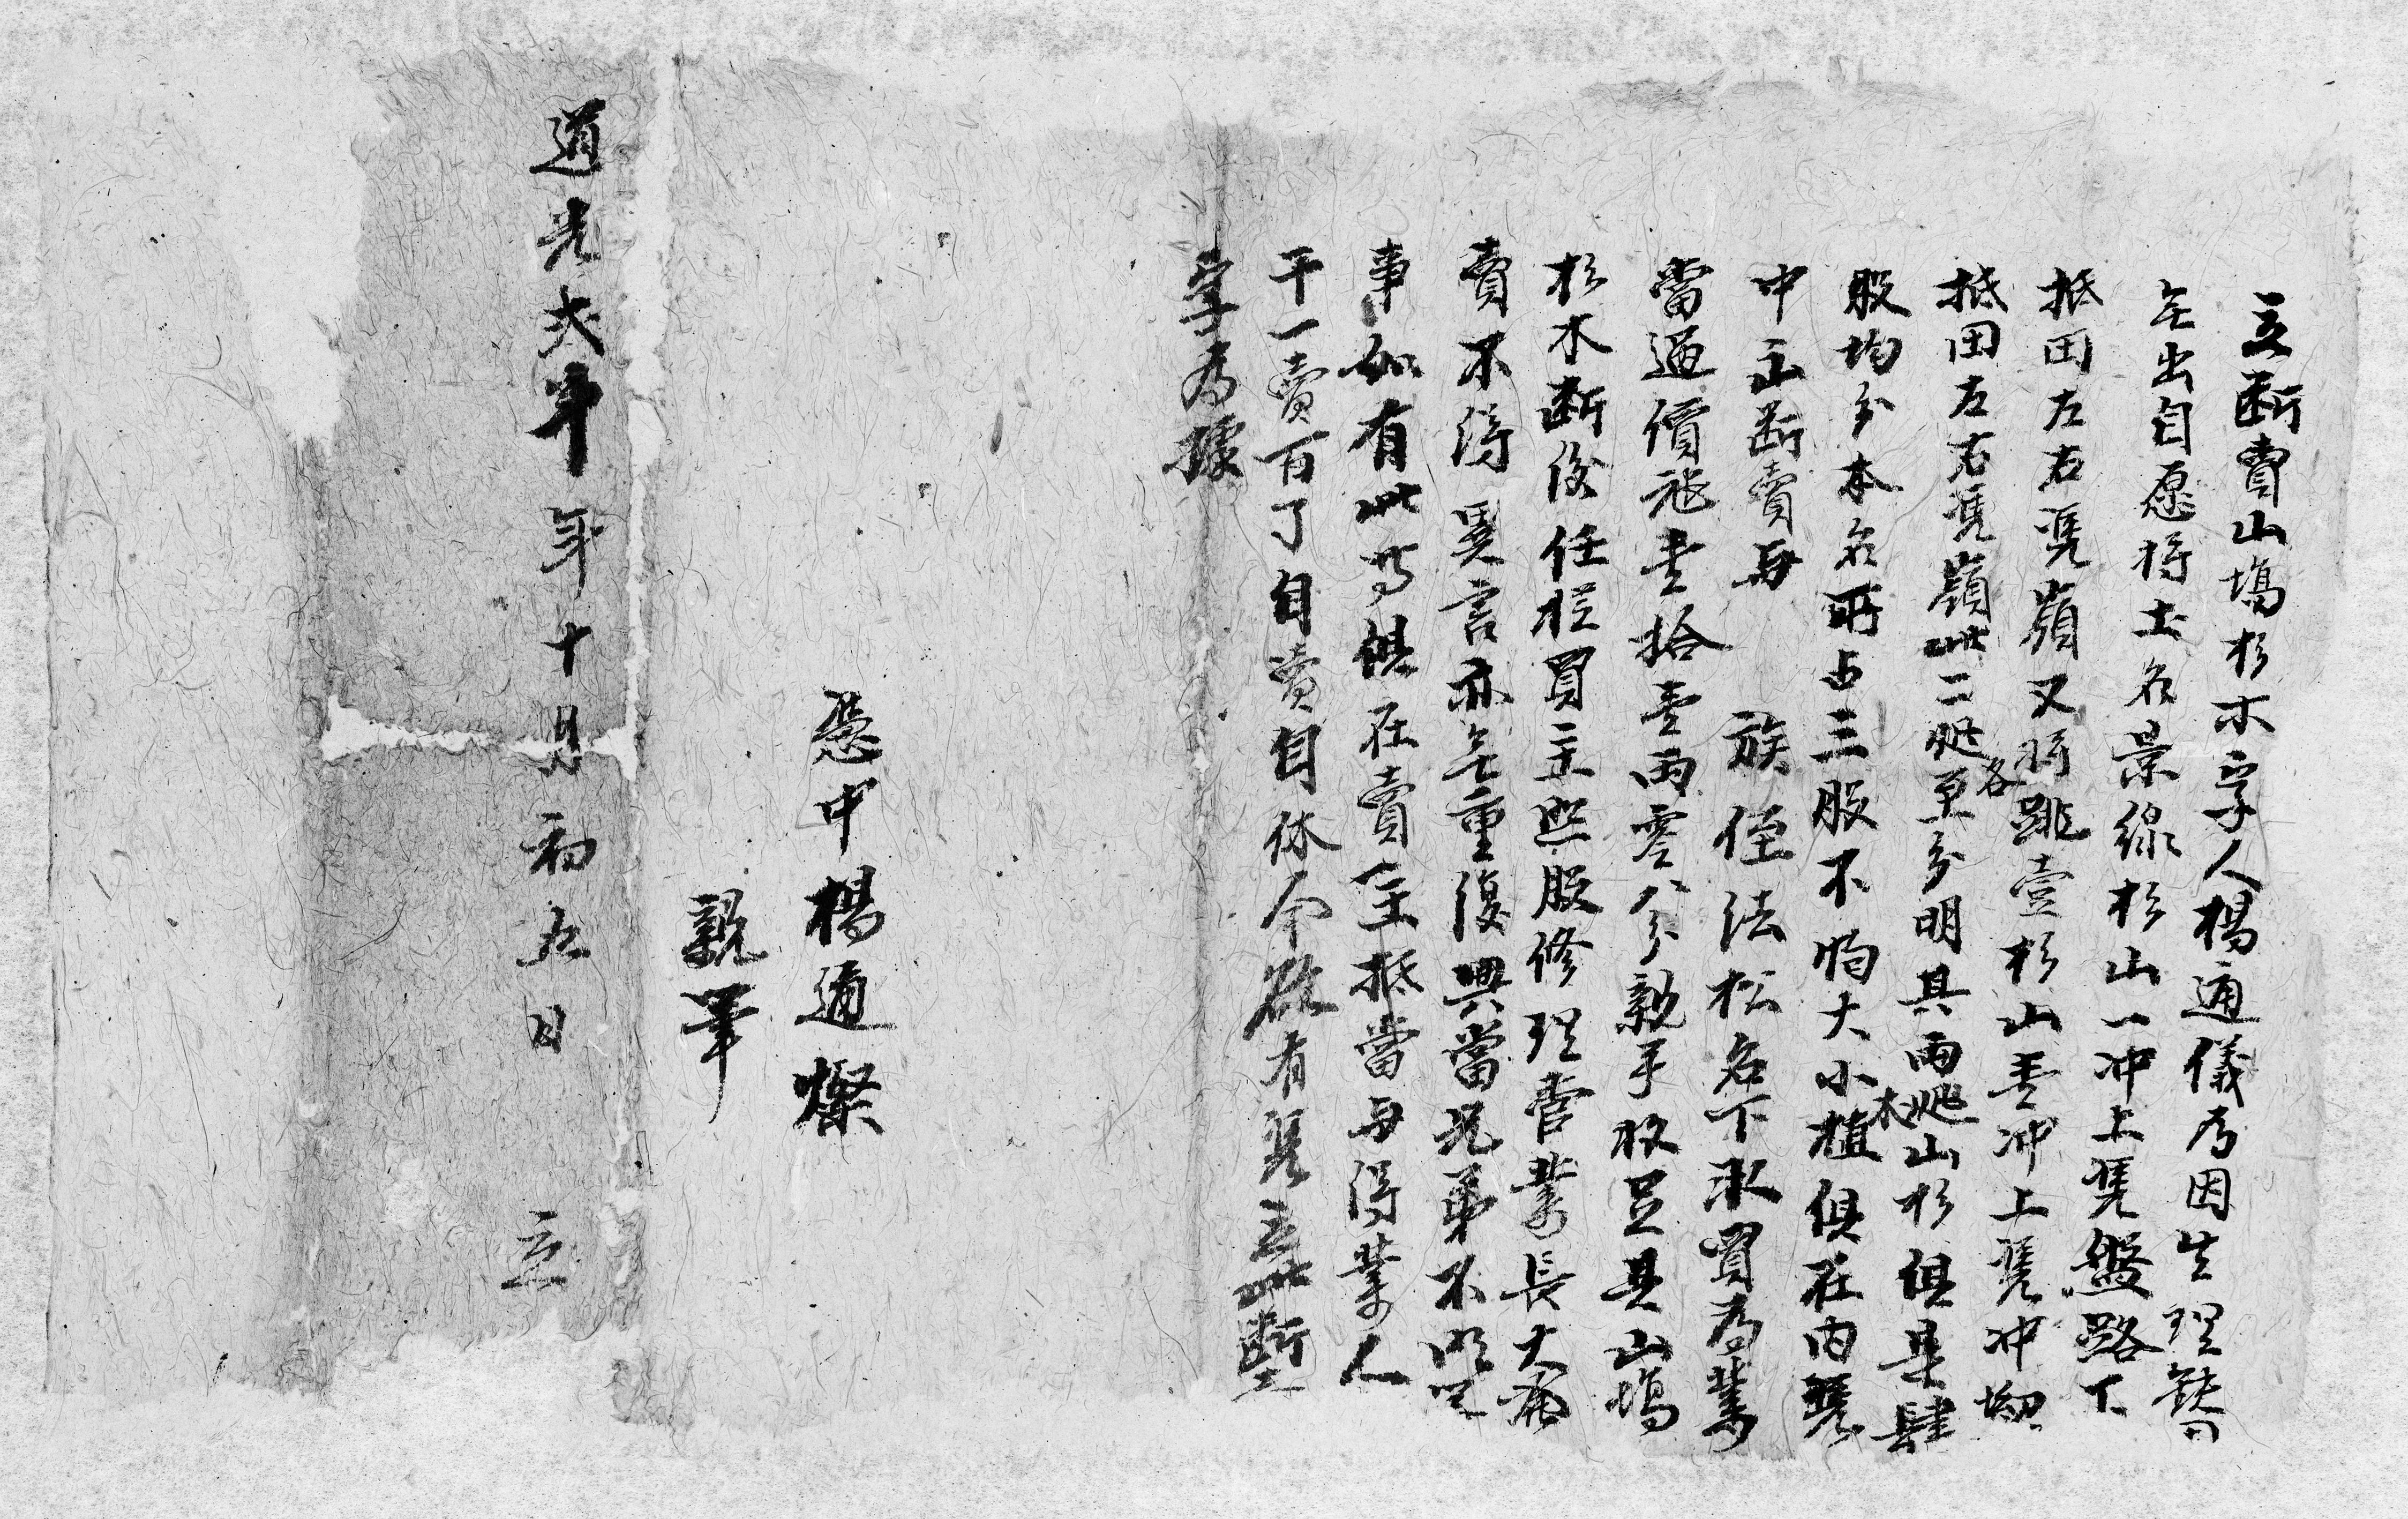 立断賣山塲杉木字人楊通儀為因生理缺
無出自愿将土名景線杉山一冲上凴盤路下
抵田左右凴嶺又将跳壹杉山壹冲上凴冲坳
抵田左右凴嶺此二處各至分明其兩處山杉俱是肆
股均分本名所占三股不悀大小植木俱在内凴
中正断賣與 族侄法松名下承買為業
當過價艮壹拾壹兩零八分親手收足其山塲
杉木断後任從買主照股修理管業長大發
賣不得異言亦無重復典當兄弟不明㞢
事如有此等俱在賣主抵當與得業人
干一賣百了自賣自休今欲有凴立此断
字為據
憑中楊通燦
親筆
道光六年年十月初九日 立